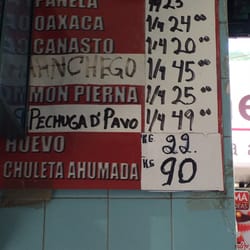 PANELA 1/4 23
OAXACA 1/4 24.00
CANASTO 1/4 20.00
MANCHEGO 1/4 45.00
JAMON PIERNA 1/4 25.00
PECHUGA D' PAVO 1/4 49.00
HUEVO KG 22.
CHULETA AHUMADA KG 90